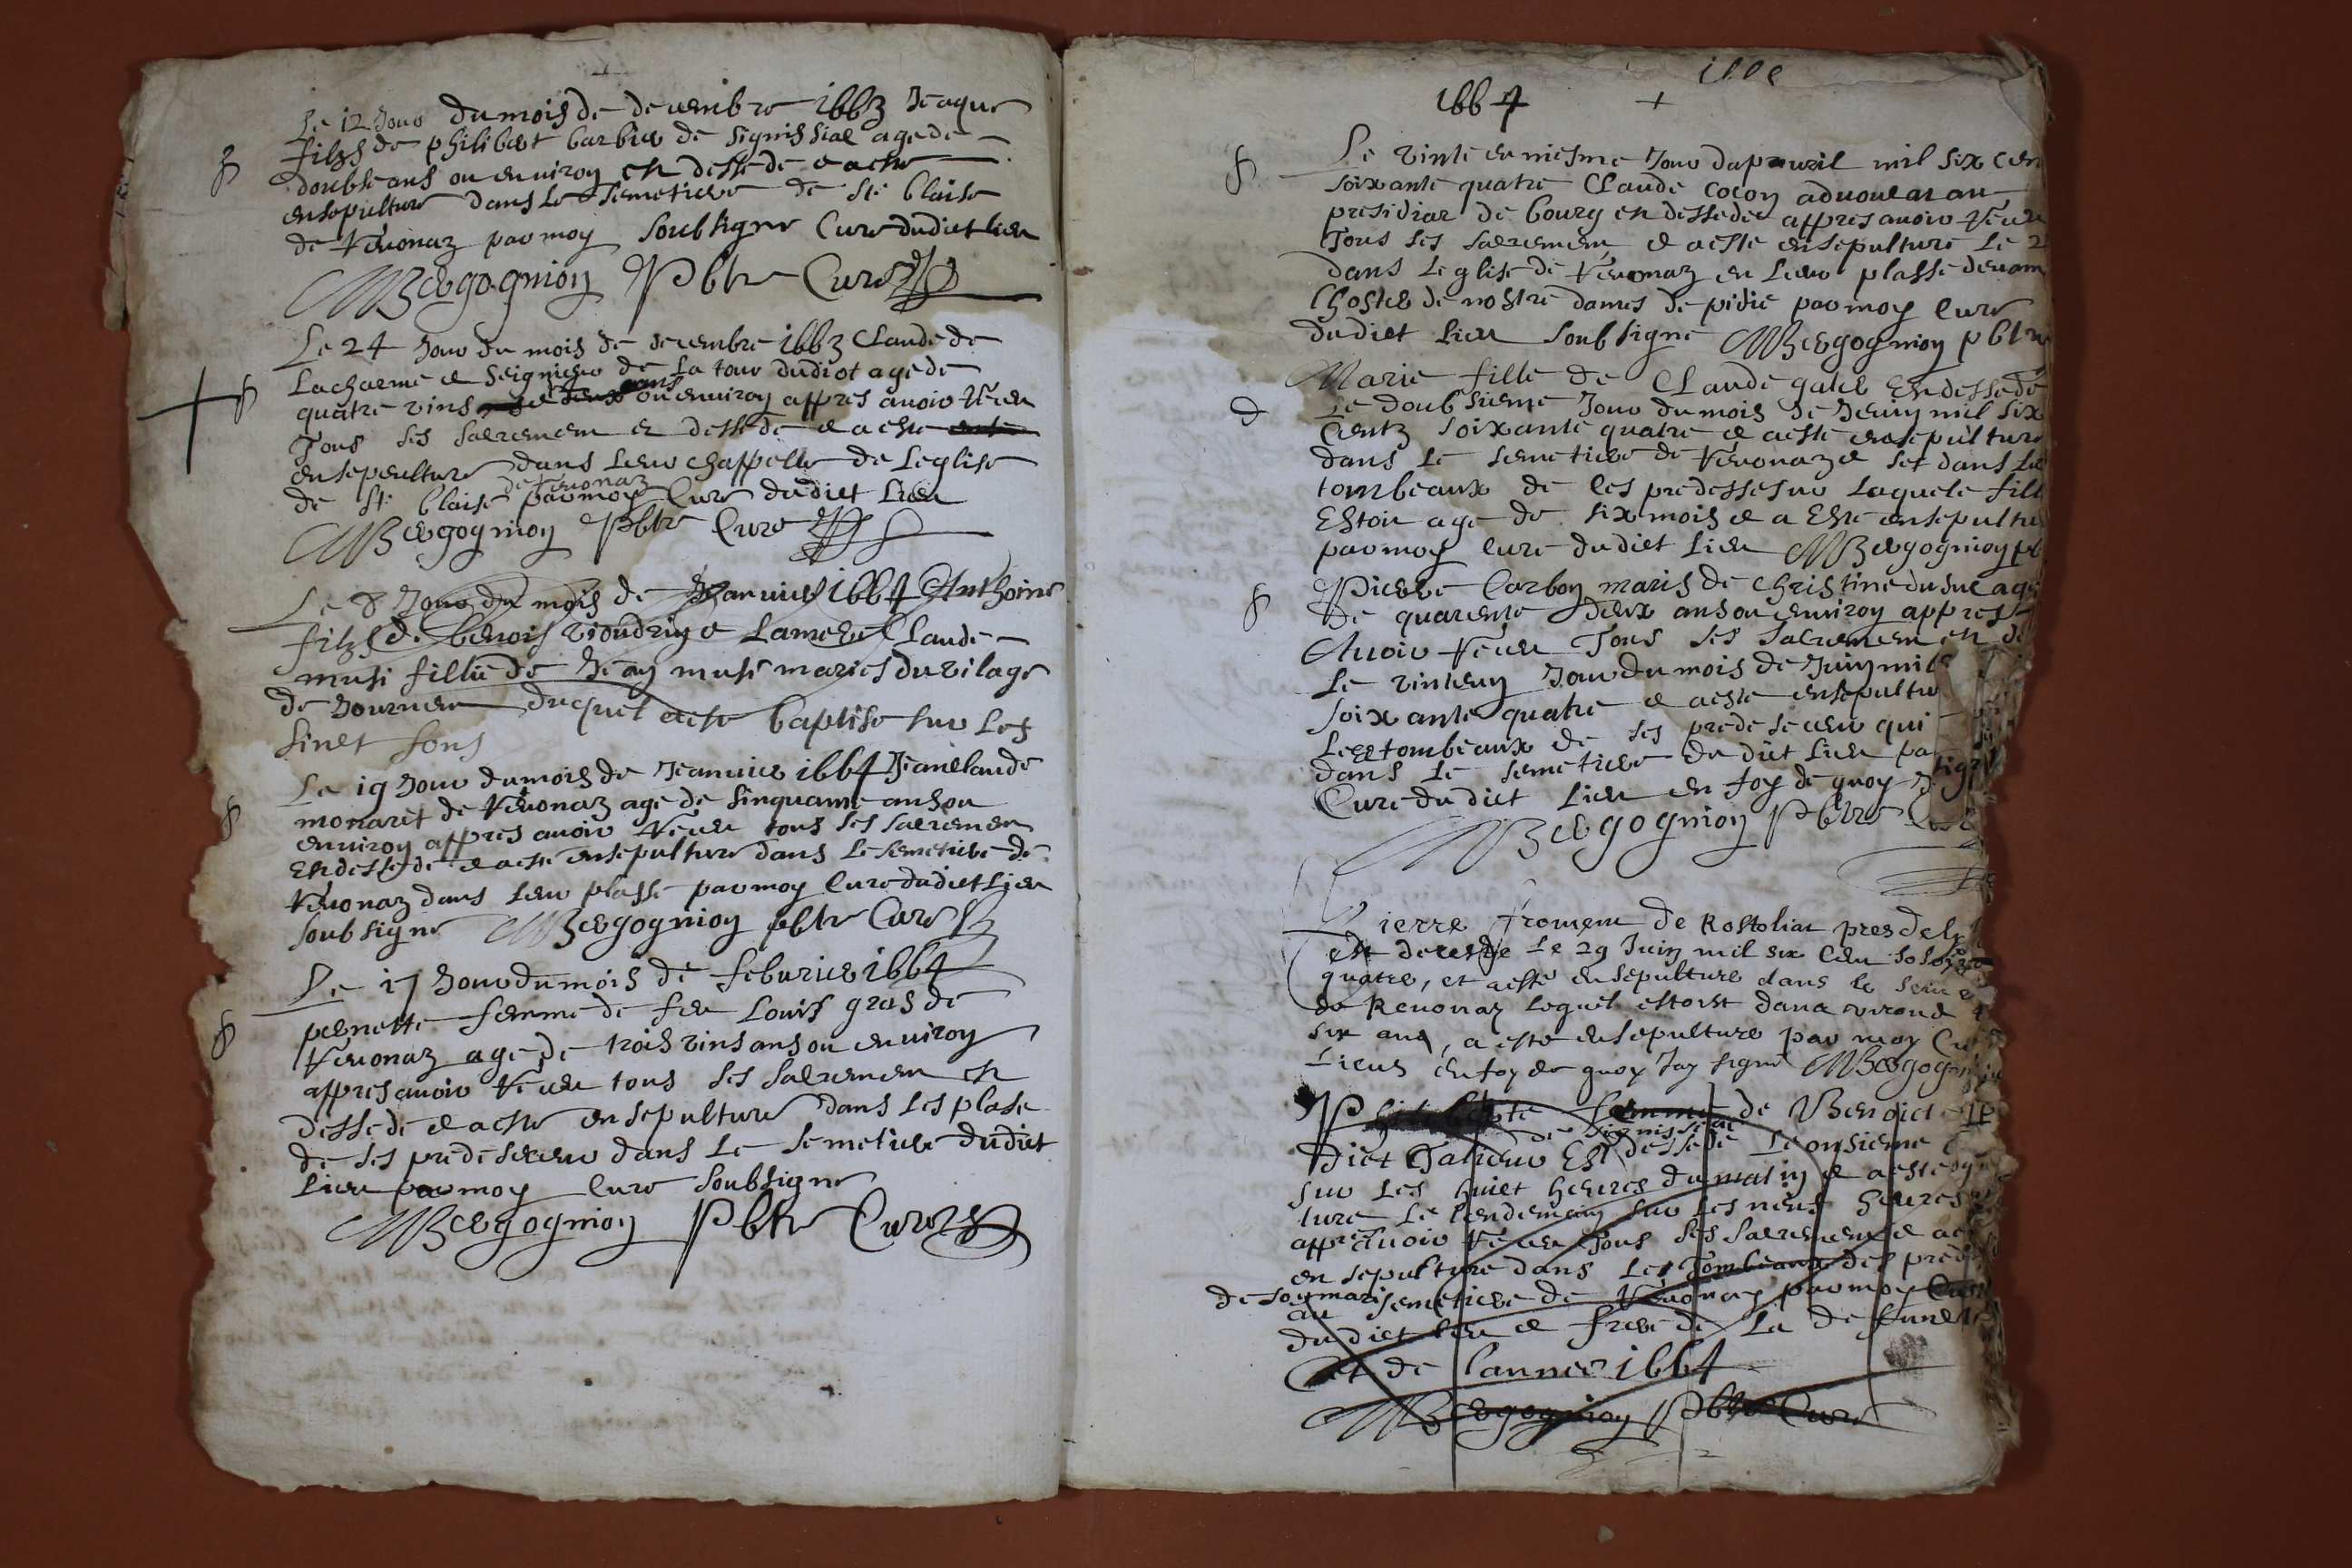 Le 12 Jour du mois de decembre 1663 Jeaque
filzs de philibert barbier de signissiat age de
doubse ans ou environ est dessede e aeste
ensepulture dans le semetiere de St. blaise
de Revonaz par moy soubsigne Cure dudict lieu
MBergognion Pbtre Cure
Le 24 Jour du mois de decembre 1663 Claude de
Lacharme e seignieur de La tour dudiot age de
quatre vins ans ou environ appres avoir Receu
Tous ses sacremem est dessede e a este
ensepeulture dans leur chappelle de Leglise
de Revonaz
de St. blaise par moy Cure dudict Lieu
MBergognion Pbtre Cure
Le 8 Jour du mois de Janvier 1664 Anthoine
filzs de benois vioudrin e Lamere Claude
musi fillie de Jean musi maries du vilage
de Journan duquel aeste baptise sur les
sinct fons
Le 19 Jour du mois de Jeanvier 1664 Jeanclaude
monaret de Revonaz age de sinquante ans ou
environ appres avoir Receu tous ses sacremen
Est dessede e aeste ensepulture dans le semetiere de
Revonaz dans leur plasse par moy Cure dudict Lieu
soubsigne MBergognion pbtre Cure
Le 17 Jour du mois de febvrier 1664
pernette femme de feu Louis gros de
Revonaz age de trois vins ans ou environ
appres avoir Receu tous ses sacremem est
dessede e aeste ensepulture dans les plase
de ses predeseceur dans le semetiere dudict
Lieu par moy Cure soubsigne
MBergognion Pbtre Cure
1664 +
Le vinte eniesme Jour dap avril mil six cen
soixante quatre Claude Cocon advoucat au
presidiar de bourg est dessedee appres avoir Receu
Tous ses sacremem e aeste ensepulture le 2
dans Leglise de Revonaz en Leur plasse devam
Lhostel de nostre dames de pidie par moy Cure
dudict Lieu soubsigne MBergognion pbtre
Marie fille de Claude gatel Est dessede
Le doubsieme Jour du mois de Jeuin mil six
Centz soixante quatre e aeste ensepulture
dans le semetiere de Revonaz e set dans Les
tombeaux de ses predessesur Laquele fill
Estoit age de six mois e a Este ensepultu
par moy Cure dudict Lieu MBergognion pb
Pierre Carbon maris de Christine du suc age
de quarente deux ans ou environ appres
Avoir Receu Tous ses sacremem est de
Le vinteun Jour du mois de Juin mil
soixante quatre e aeste ensepultu
Les tombeaux de ses predeseceur qui
dans le semetiere dudict Lieu pa
Cure dudict Lieu en foy de quoy Jay sign
MBergognion Pbtre Cu
Pierre fromem de Rostoliat pres de
est decesde Le 29 Juin mil six Cen
quatre, et aeste ensepulture dans le seme
de Revonaz lequel estoist
six ans, a este ensepulture par moy Cu
Lieus en foy de quoy Jay signe MBergogn
femme de Benoict
de signissiat
dict Est dessede Le onsieme
sur Les huict heures du matin e aeste
ture Le lendemain sur les neuf heures
appres avoir Receu Tous ses sacremem e ae
ensepulture dans Les Tombeaux des prede
de son mari semetiere de Revonaz par moy Cure
au
dudict Lieu e frere de La defuncte
et de Lannee 1664
MBergognion Pbtre Cure